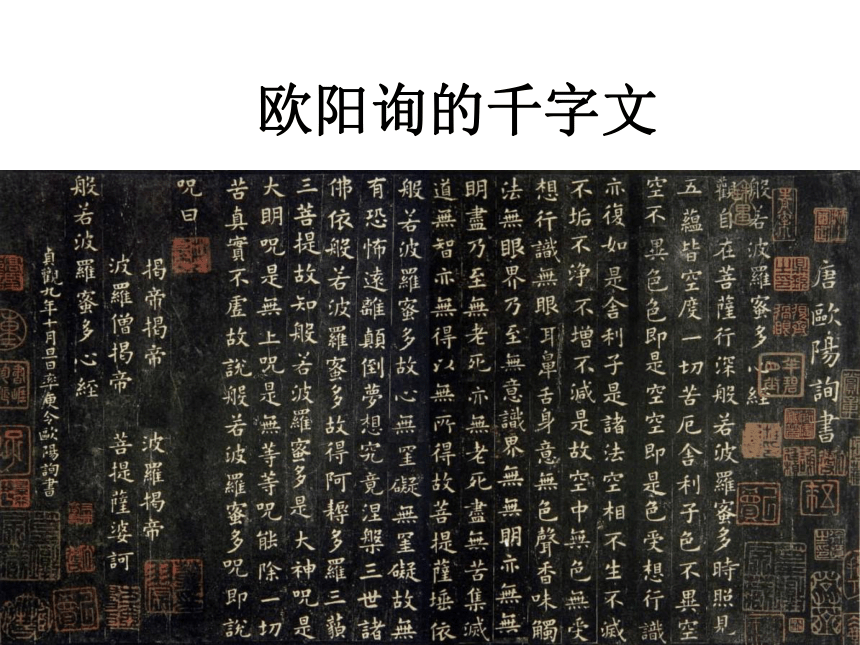 欧阳询的千字文
唐歐陽詢書
般若波羅蜜多心經
觀自在菩薩行深般若波羅蜜多時照見
五蘊皆空度一切苦厄舍利子色不異空
空不異色色即是空空即是色受想行識
亦復如是舍利子是諸法空相不生不滅
不垢不淨不增不減是故空中無色無受
想行識無眼耳鼻舌身意無色聲香味觸
法無眼界乃至無意識界無無明亦無無
明盡乃至無老死亦無老死盡無苦集滅
道無智亦無得以無所得故菩提薩埵依
般若波羅蜜多故心無罣礙無罣礙故無
有恐怖遠離顛倒夢想究竟涅槃三世諸
佛依般若波羅蜜多故得阿耨多羅三藐
三菩提故知般若波羅蜜多是大神咒是
大明咒是無上咒是無等等咒能除一切
苦真實不虛故說般若波羅蜜多咒即說
咒曰
揭帝揭帝 波羅揭帝
波羅僧揭帝 菩提薩婆訶
般若波羅蜜多心經
貞觀九年十月旦日率更令歐陽詢書